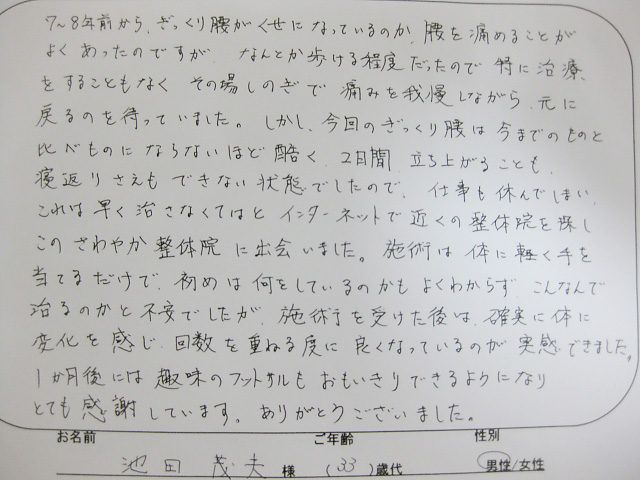 7~8年前から、ぎっくり腰がくせになっているのか、腰を痛めることが
よくあったのですが、なんとか歩ける程度だったので特に治療
をすることもなく その場しのぎで 痛みを我慢しながら、元に
戻るのを待っていました。しかし、今回のぎっくり腰は今までのものと
比べものにならないほど酷く、2日間、立ち上がることも、
寝返りさえも できない状態でしたので、仕事も休んでしまい、
これは早く治さなくてはと インターネットで近くの整体院を探し
このさわやか整体院に出会いました。施術は体に軽く手を
当てるだけで、初めは何をしているのかもよくわからず、こんなんで
治るのかと不安でしたが、施術を受けた後は、確実に体に
変化を感じ、回数を重ねる度に良くなっているのが実感できました。
1か月後には趣味のフットサルもおもいきりできるようになり
とても感謝しています。ありがとうございました。
お名前 ご年齢 性別
池田茂夫 様 (33)歳代 男性/女性